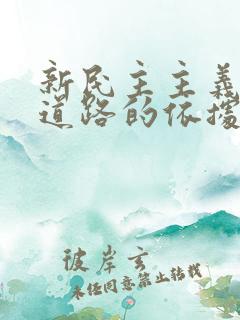 新民主主义
道路的依据
彼岸玄
未经同意禁止转载